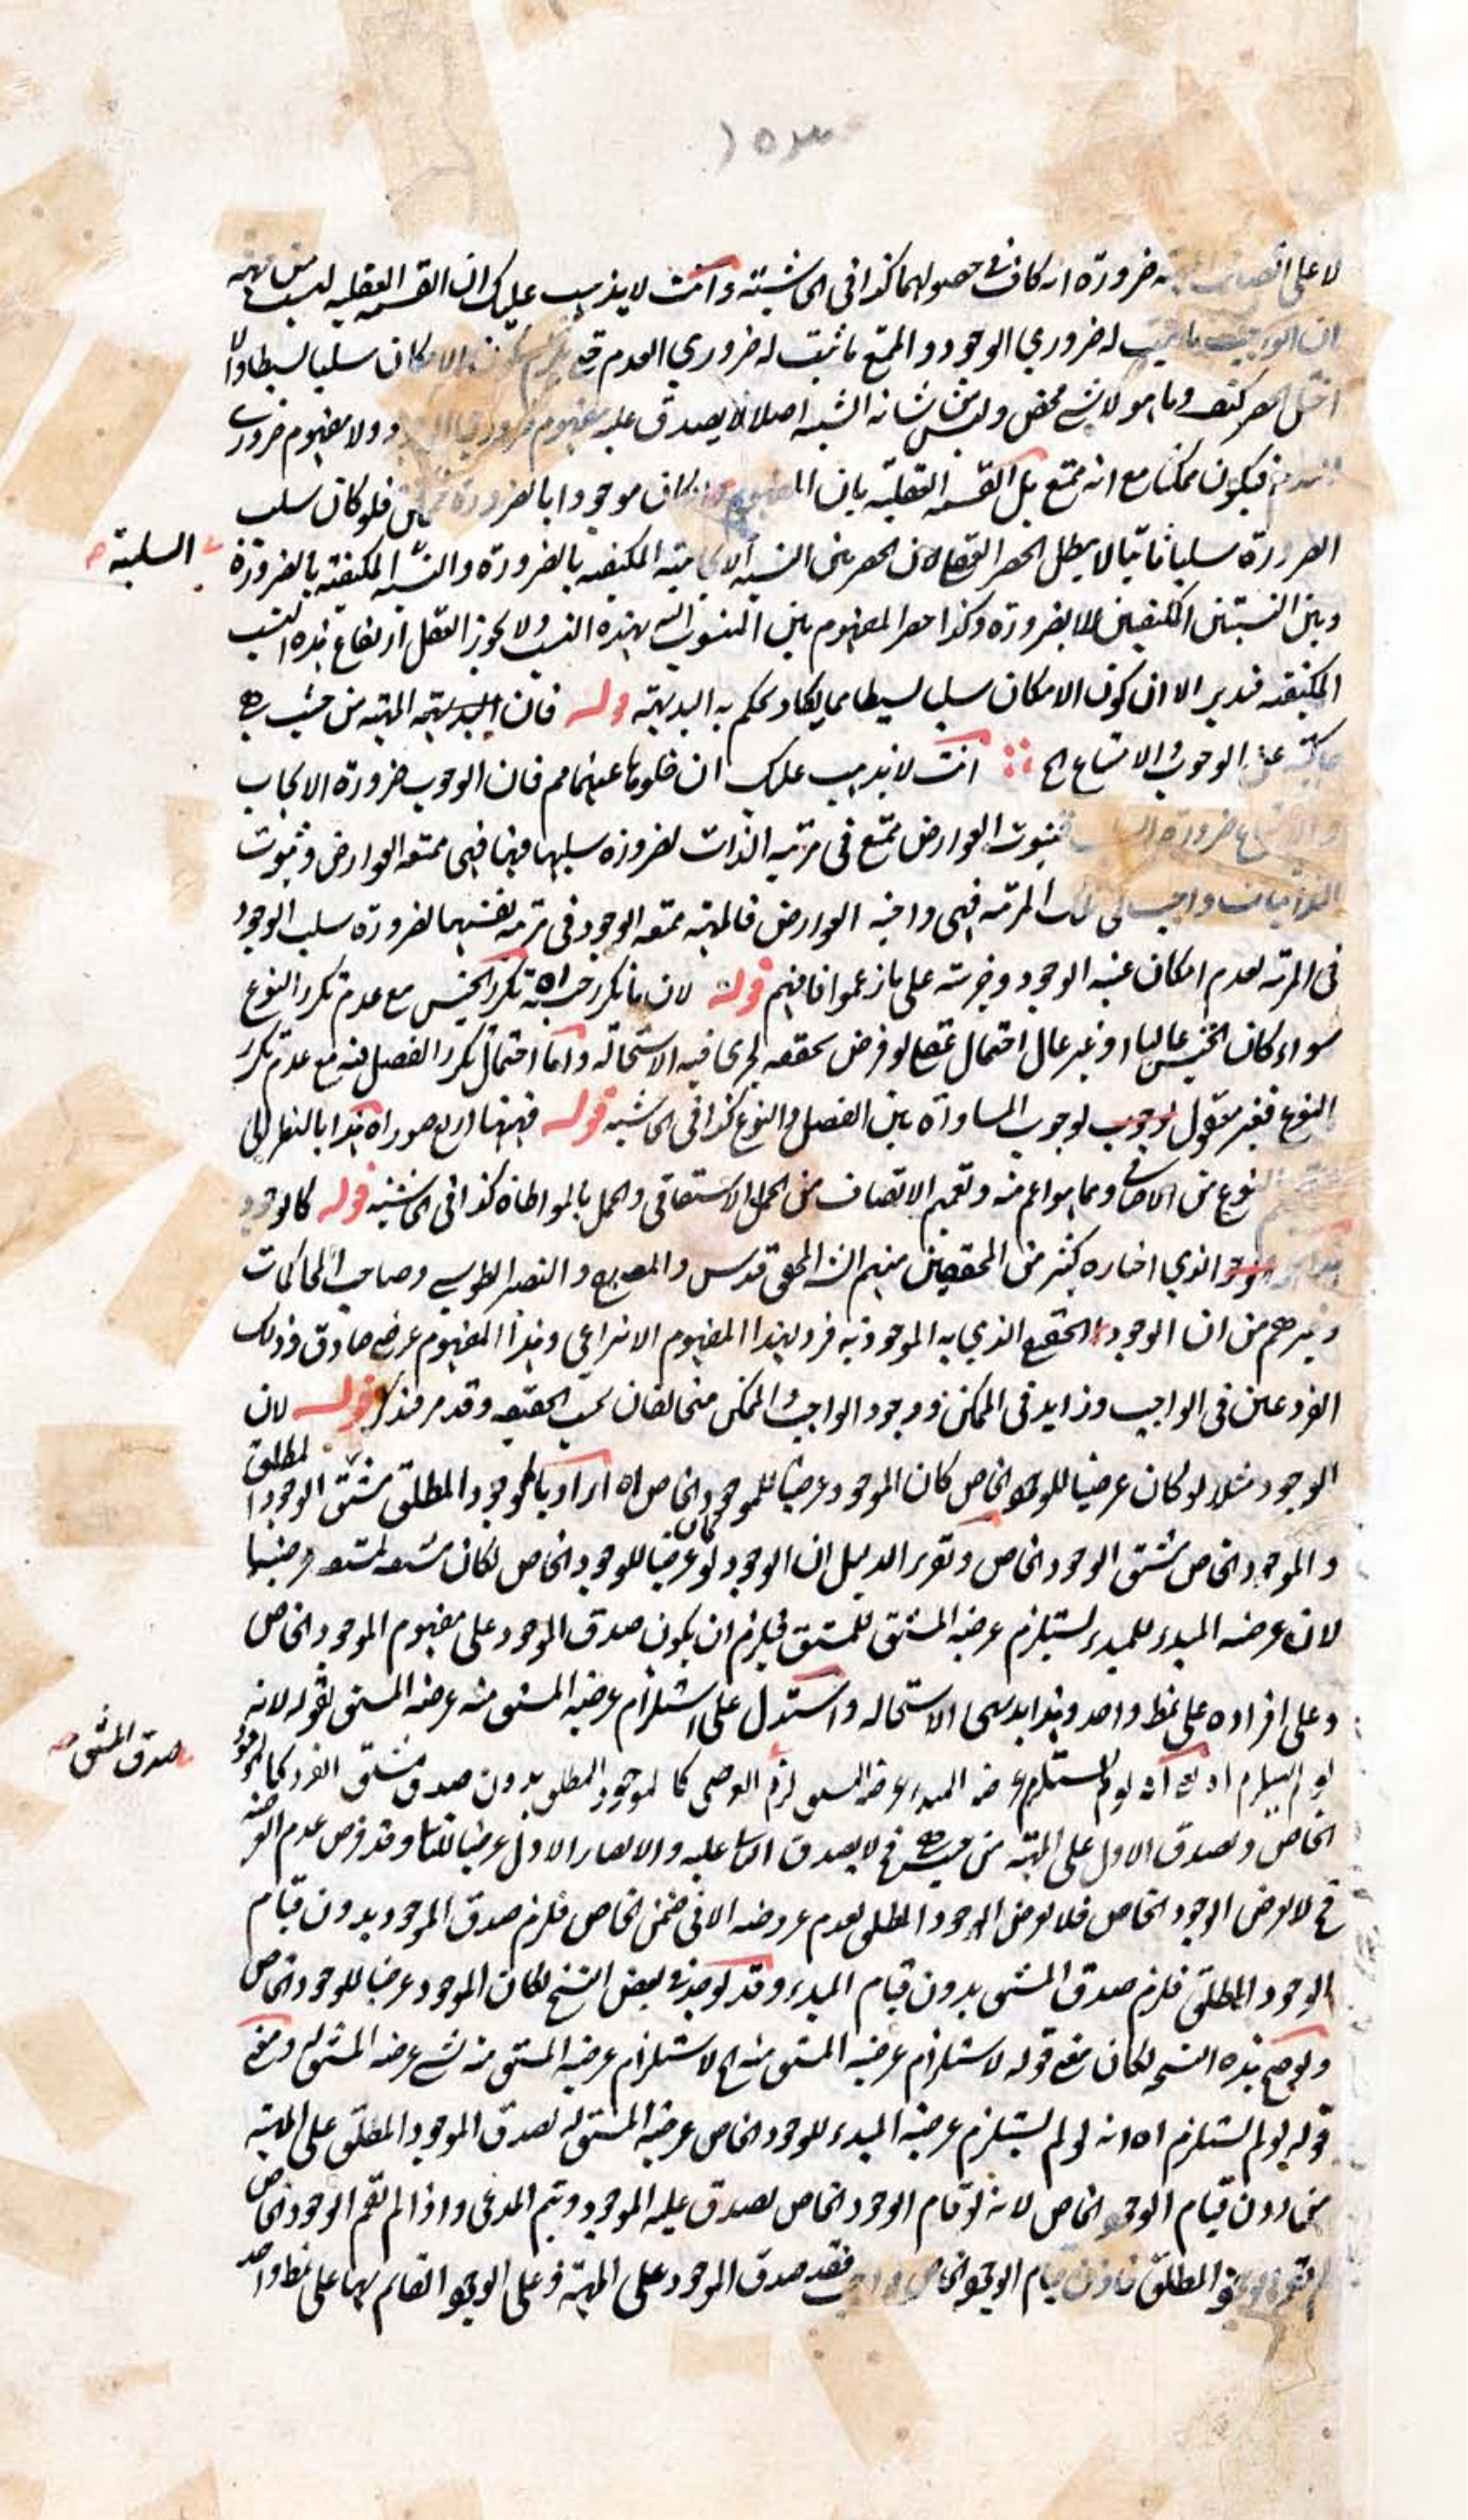 ١٥٣
لا على ضرورة انه كاف فى حصولهما كذا فى الحاشية وانت لا يذهب عليك ان القسمة العقلية ليست
ان الواجب ما ثبت له ضروري الوجود والممتنع ما ثبت له ضروري العدم الامكان سلبا بسيطا والا
اختل الحصر كيف وما هو لا شئ محض وليس من شانه الشيئية اصلا لا يصدق عليه مفهوم ضروري ولا مفهوم ضروري
فيكون ممكنا مع انه ممتنع بل القسمة العقلية بان المفهوم ان كان موجودا بالضرورة فلو كان سلب
الضرورة سلبا ثانيا لا يبطل الحصر العقلى لان الحصر بين النسبة الايجابية المكيفة بالضرورة والنسبة المكيفة بالضرورة
السلبية
وبين النسبتين المكيفتين بلا ضرورة وكذا حصر المفهوم بين المنسوب اليه بهذه النسب ولا يجوز العقل ارتفاع هذه النسب
المكيفة فتدبر الا ان كون الامكان سلبا بسيطا مما يكاد يحكم به البديهة قوله فان البديهة المهية من حيث هى
خالية عن الوجوب والامتناع الخ انت لا يذهب عليك ان خلوها عنهما مم فان الوجوب ضرورة الايجاب
والامتناع ضرورة السلب فثبوت العوارض ممتنع فى مرتبة الذات لضرورة سلبها فيها فهى ممتنعة العوارض وثبوت
الذاتيات واجب فى تلك المرتبة فهى واجبة العوارض فالمهية ممتنعة الوجود فى مرتبة نفسها لضرورة سلب الوجود
فى المرتبة لعدم امكان عينية الوجود وجزئيته على ما زعموا فافهم قوله لان ما تكرر جنسه اه تكرر الجنس مع عدم تكرر النوع
سواء كان الجنس عاليا او غير عال احتمال عقلى لو فرض تحققه لجرى فيه الاستحالة واما احتمال تكرر الفصل فيه مع عدم تكرر
النوع فغير معقول لوجوب المساواة بين الفصل والنوع كذا فى الحاشية قوله فههنا اربع صور اه هذا بالنظر الى
نوع من الاخص ومما هو اعم منه وتعميم الاتصاف من الحمل الاشتقاقى والحمل بالمواطاة كذا فى الحاشية قوله كالوجود
الذي اختاره كثير من المحققين منهم المحقق قدس والنصير الطوسي وصاحب المحاكمات
وغيرهم من ان الوجود الحقيقى الذي به الموجودية فرد لهذا المفهوم الانتزاعى وهذا المفهوم عرضى صادق وذلك
الفرد عين فى الواجب وزايد فى الممكن ووجود الواجب والممكن متخالفان بحسب الحقيقة وقد مر فتذكر قوله لان
الوجود مثلا لو كان عرضيا للوجود الخاص كان الموجود عرضيا للموجود الخاص اه اراد بالموجود المطلق مشتق الوجود المطلق
والموجود الخاص مشتق الوجود الخاص وتقرير الدليل ان الوجود لو كان عرضيا للوجود الخاص لكان مشتقه لمشتقه عرضيا
لان عرضية المبدء للمبدء يستلزم عرضية المشتق للمشتق فيلزم ان يكون صدق الموجود على مفهوم الموجود الخاص
وعلى افراده على نمط واحد وهذا بديهى الاستحالة واستدل على استلزام عرضية المشتق منه عرضية المشتق بقوله لانه
لو لم يستلزم اه اى لو لم يستلزم عرضية المبدء عرضية المشتق لزم كالموجود المطلق بدون صدق مشتق الفرد كالموجود
صدق المشتق
الخاص وصدق الاول على المهية من حيث هى فح لا يصدق الثانى عليه والا لصار الاول عرضيا للثانى وقد فرض عدم العرضية
فح لا يعرض الوجود الخاص فلا يعرض الوجود المطلق لعدم عروضه الا فى ضمن الخاص فلزم صدق الموجود بدون قيام
الوجود المطلق فلزم صدق المشتق بدون قيام المبدء وقد يوجد فى بعض النسخ لكان الموجود عرضيا للوجود الخاص
ولو صح هذه النسخة لكان معنى قوله لاستلزام عرضية المشتق منه الخ لاستلزام عرضية المشتق منه لشئ عرضية المشتق له ومعنى
قوله لو لم يستلزم اه انه لو لم يستلزم عرضية المبدء للوجود الخاص عرضية المشتق له لصدق الموجود المطلق على المهية
من دون قيام الوجود الخاص لانه لو قام الوجود الخاص لصدق عليه الموجود ويتم المدعى واذا لم يقم الوجود الخاص
لم يقم الوجود المطلق قيام الوجود الخاص فقد صدق الموجود على المهية وعلى الوجود القائم بها على نمط واحد